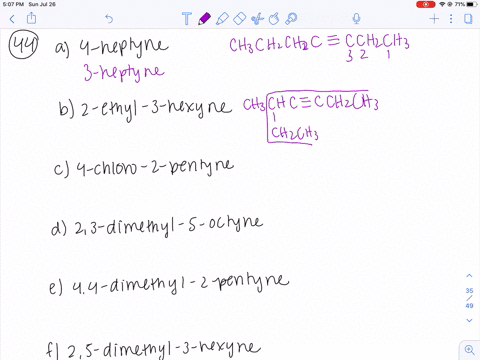 5:07 PM Sun Jul 26
71%
44
a) 4-heptyne CH3CH2CH2C≡CCH2CH3
3 2 1
3-heptyne
b) 2-ethyl-3-hexyne CH3CHC≡CCH2CH3
CH2CH3
c) 4-chloro-2-pentyne
d) 2,3-dimethyl-5-octyne
e) 4,4-dimethyl-2-pentyne
f) 2,5-dimethyl-3-hexyne
35
/
49